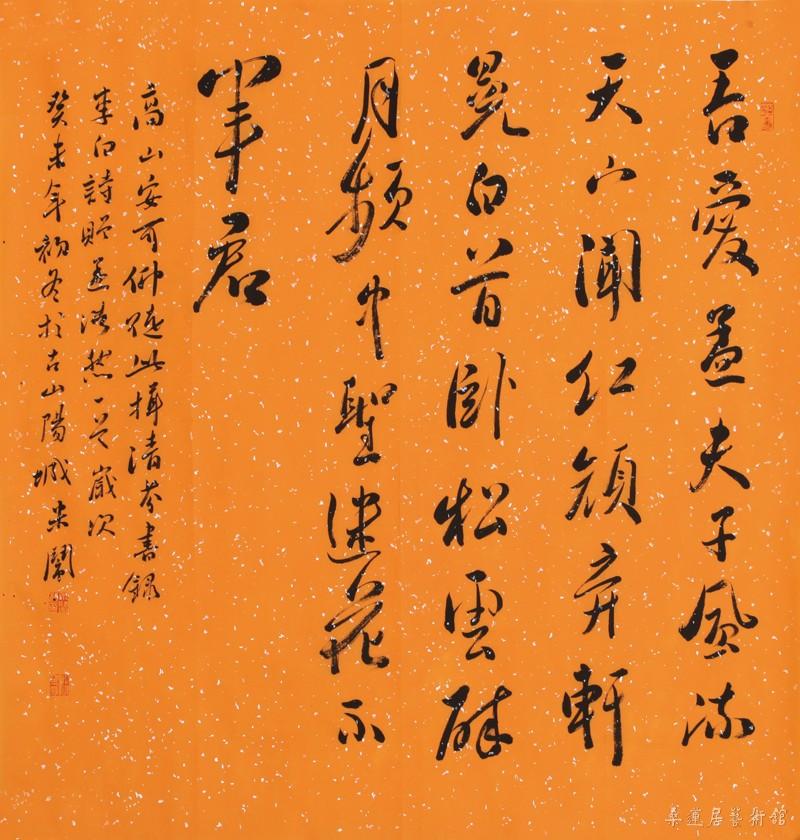 吾愛孟夫子風流
天下聞紅顏弃軒
冕白首卧松雲醉
月頻中聖迷花不
事君
高山安可仰徒此揖清芬書錄
李白詩贈孟浩然一首歲次
癸未年初冬於古山陽城
桑蓮居藝術館